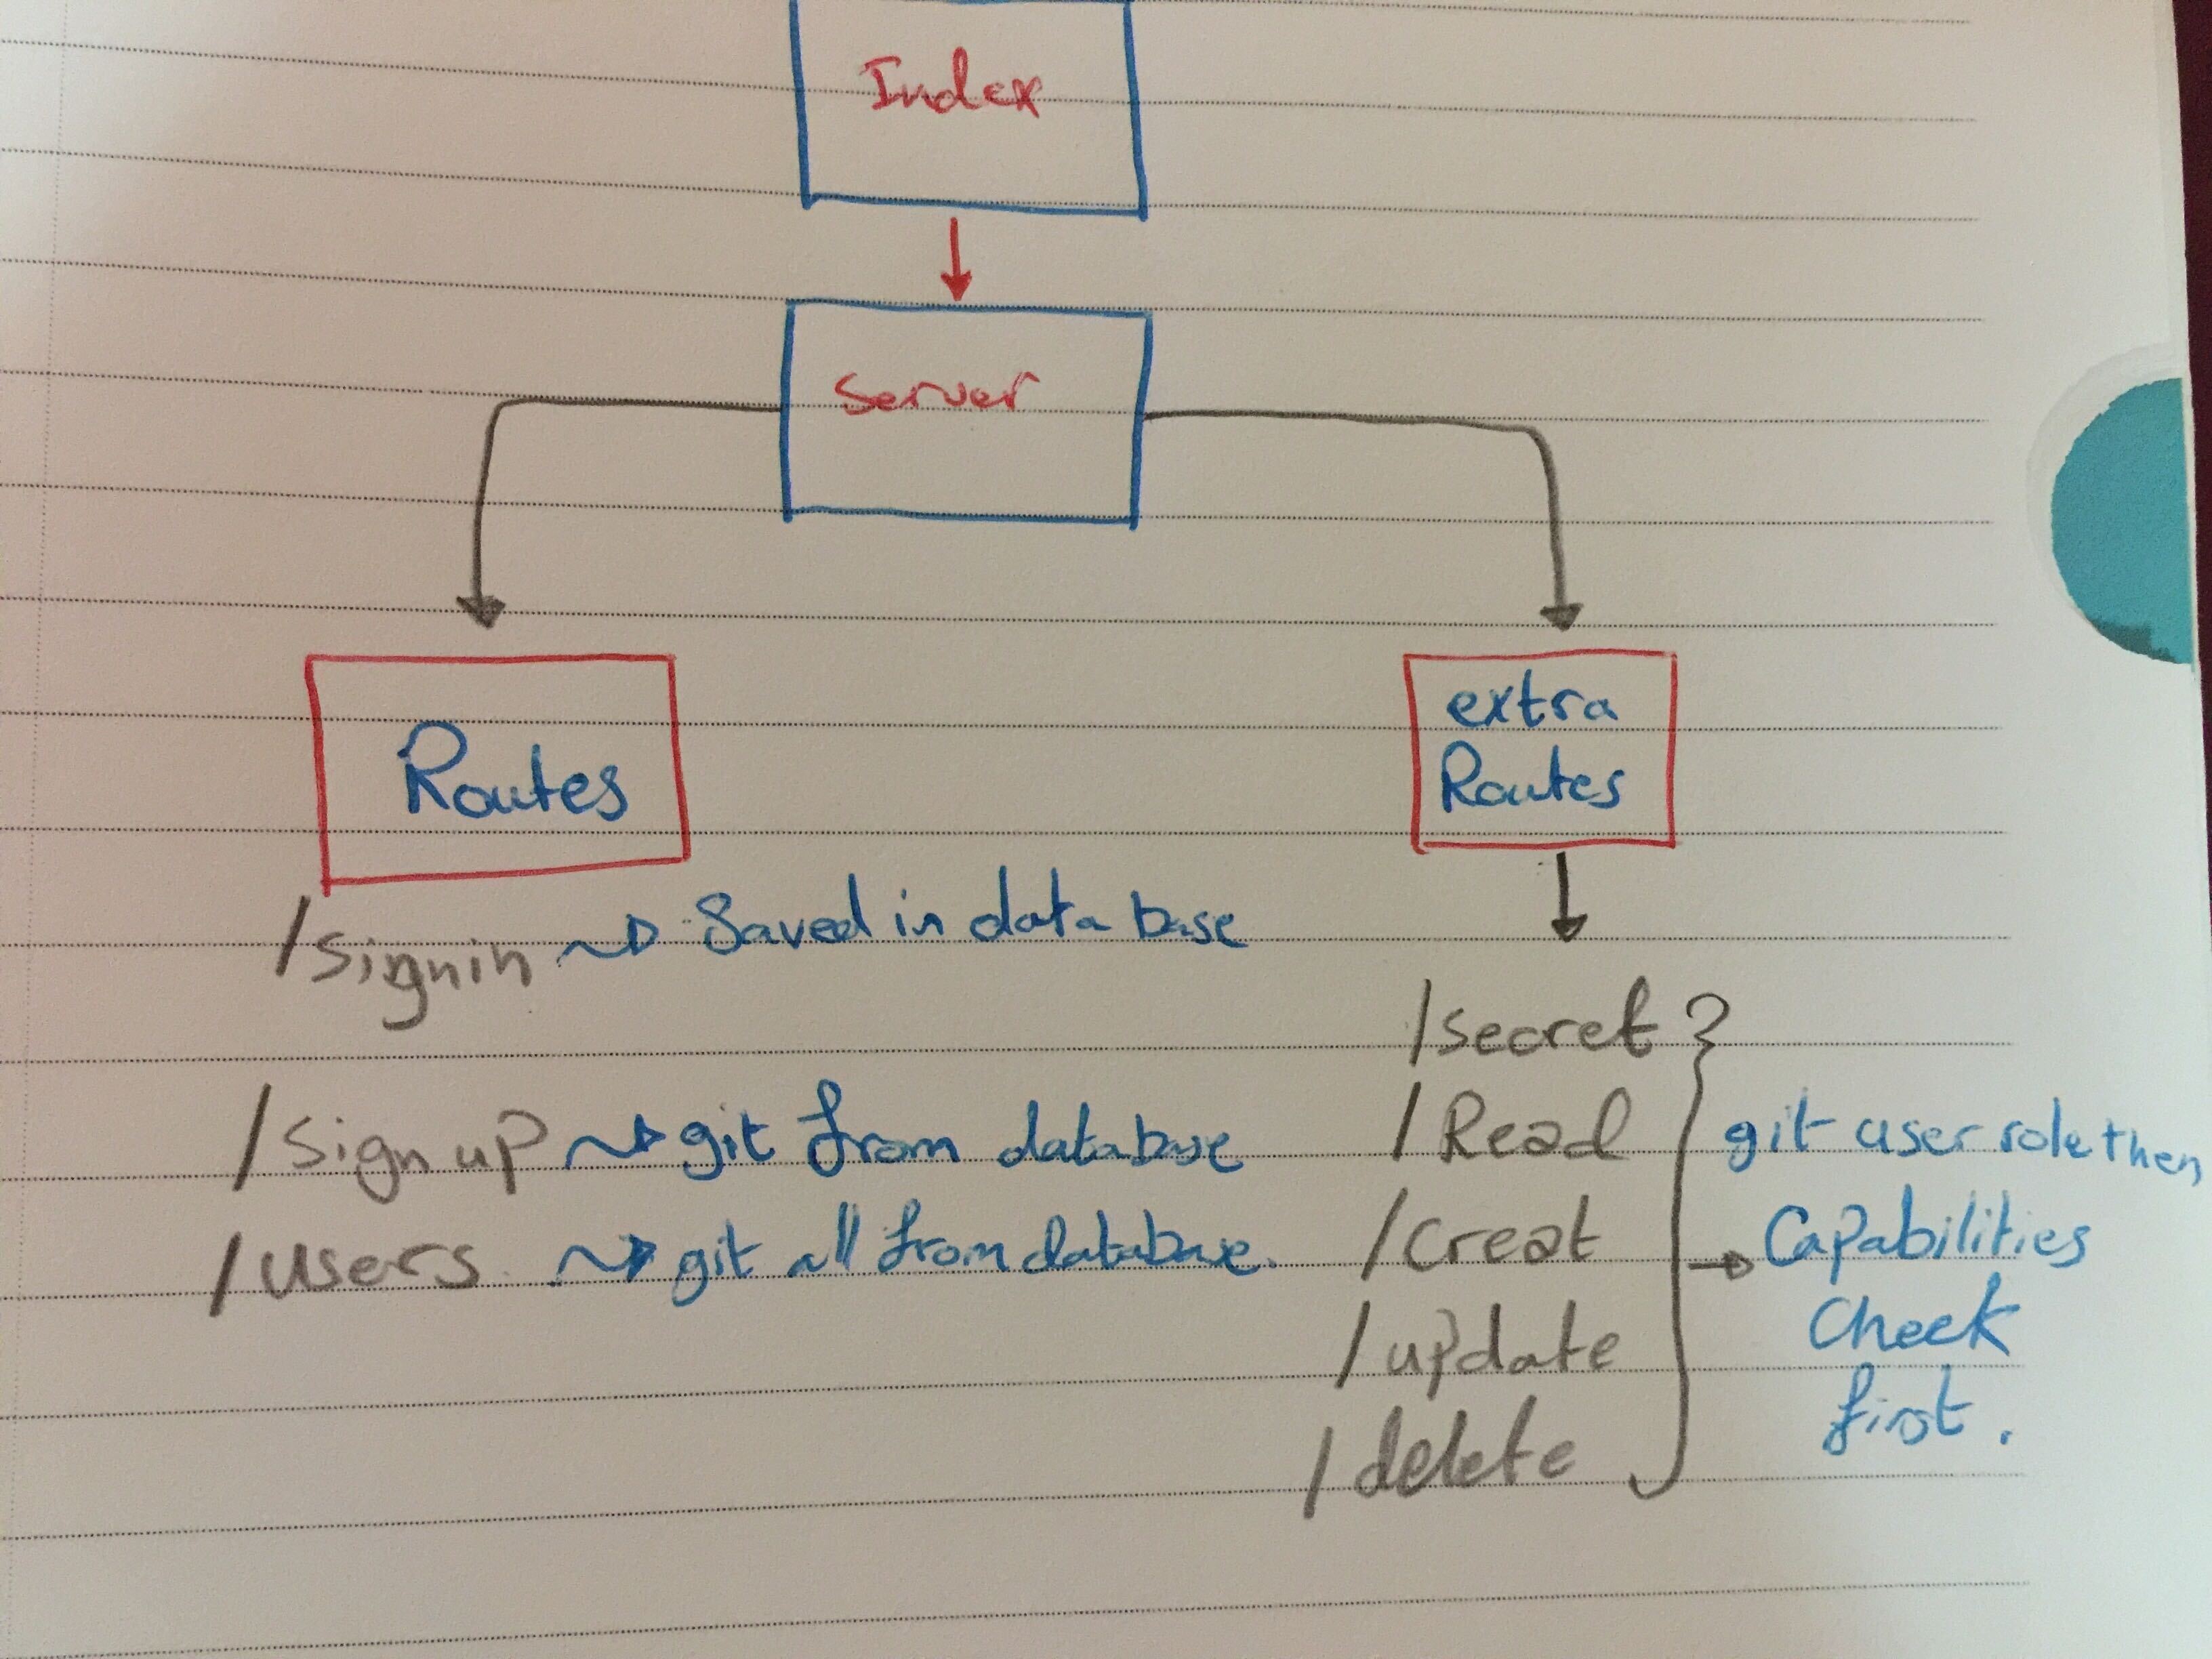 Index
Server
Routes
extra
Routes
/signin → Saved in data base
/sign up → git from database
/users → git all from database.
/secret
/Read
/creat
/update
/delete
git user role then
→ Capabilities
Check
first.